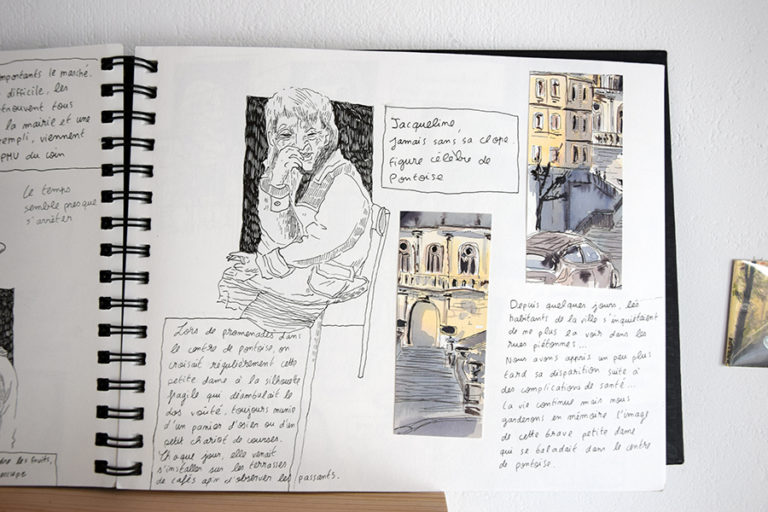 mportants le marché.
difficile, les
trouvent tous
la mairie et une
rempli, viennent
PMU du coin
Le temps
semble presque
s'arrêter
les fruits,
Jacqueline,
jamais sans sa clope.
figure célèbre de
Pontoise
Lors de promenades dans
le centre de pontoise, on
croisait régulièrement cette
petite dame à la silhouette
fragile qui déambulait le
dos vouté, toujours munie
d'un panier d'osier ou d'un
petit chariot de courses.
Chaque jour, elle venait
s'installer sur les terrasses
de cafés afin d'observer les passants.
Depuis quelques jours, les
habitants de la ville s'inquiétaient
de ne plus la voir dans les
rues piétonnes...
Nous avons appris un peu plus
tard sa disparition suite à
des complications de santé...
La vie continue mais nous
garderons en mémoire l'image
de cette brave petite dame
qui se baladait dans le centre
de pontoise.